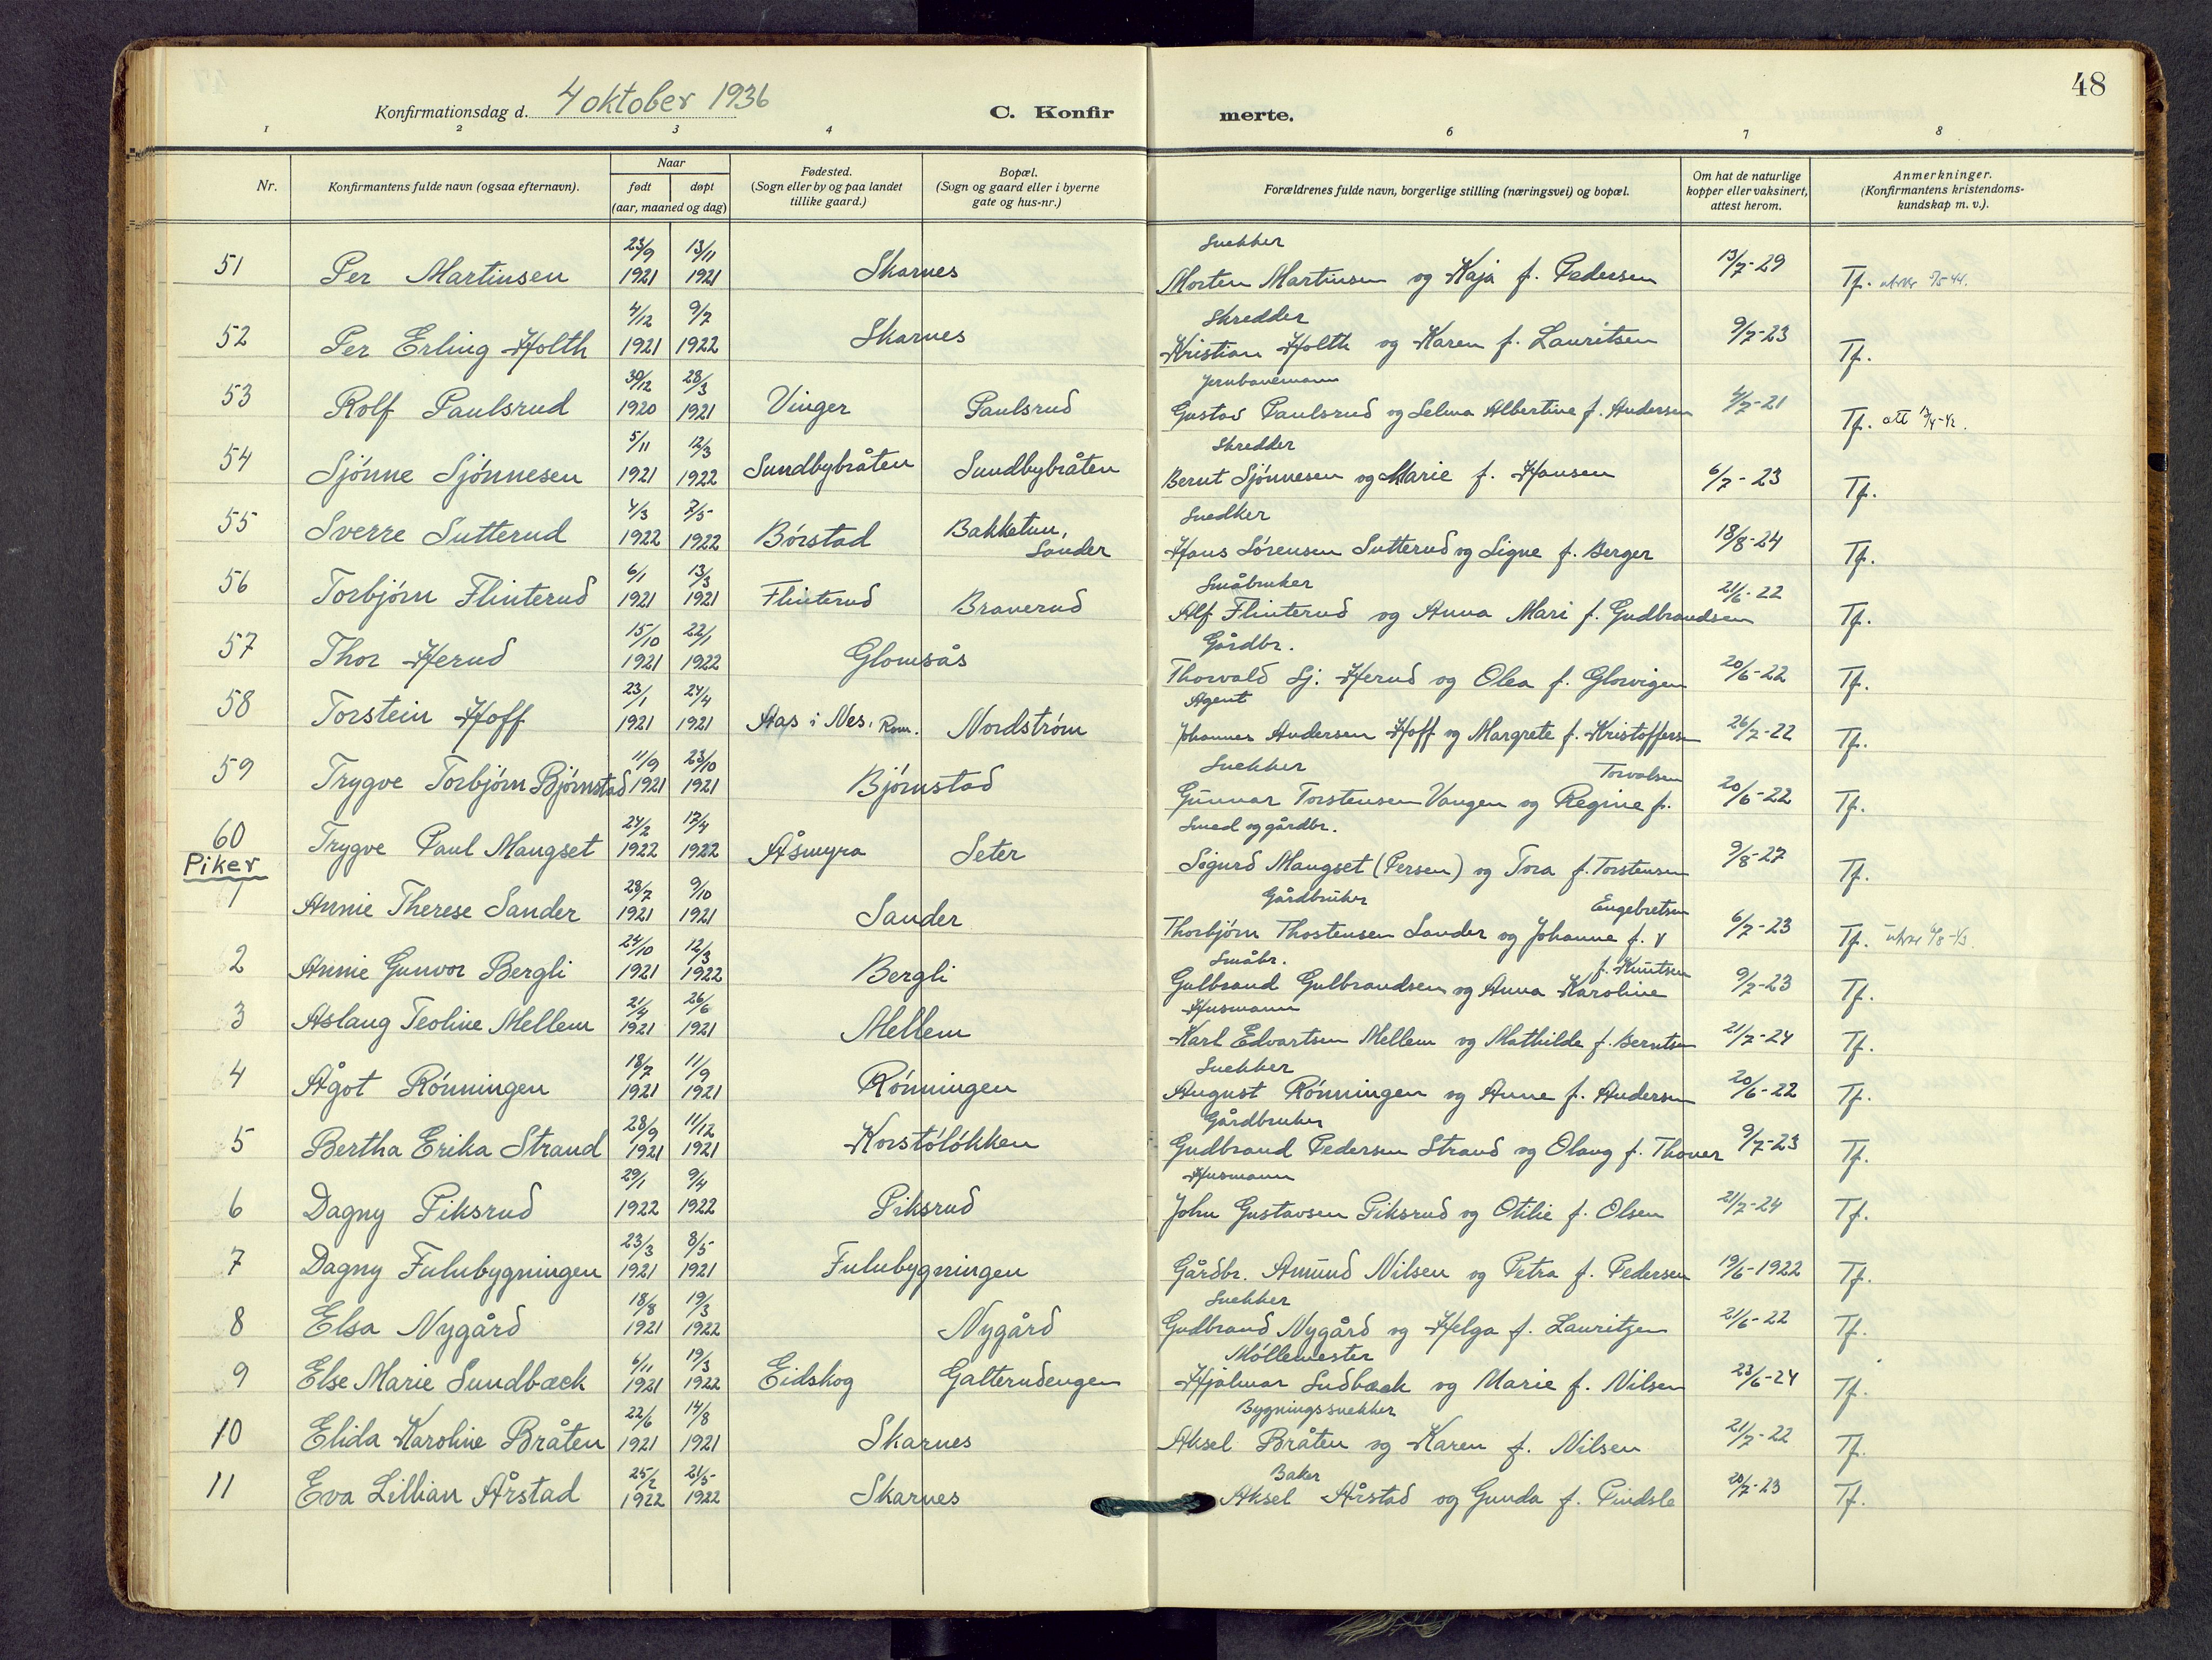 48
Konfirmationsdag d. 4 oktober 1936
C. Konfir merte.
1 2 3 4 6 7 8
Nr. Konfirmantens fulde navn (ogsaa efternavn). Naar født døpt (aar, maaned og dag) Fødested. (Sogn eller by og paa landet tillike gaard.) Bopæl. (Sogn og gaard eller i byerne gate og hus-nr.) Forældrenes fulde navn, borgerlige stilling (næringsvei) og bopæl. Om hat de naturlige kopper eller vaksinert, attest herom. Anmerkninger. (Konfirmantens kristendoms-kundskap m. v.).
51 Per Martinsen 23/9 1921 13/11 1921 Skarnes Snekker Morten Martinsen og Kaja f. Pedersen 13/7-29 Tf.
52 Per Erling Holth 4/12 1921 9/7 1922 Skarnes Skredder Kristian Holth og Karen f. Lauritsen 9/7-23 Tf.
53 Rolf Paulsrud 30/12 1920 28/3 1921 Vinger Paulsrud Jernbanemann Gustav Paulsrud og Selma Albertine f. Andersen 4/7-21 Tf.
54 Sjønne Sjønnesen 5/11 1921 12/3 1922 Sundbybråten Sundbybråten Skredder Bernt Sjønnesen og Marie f. Hansen 6/7-23 Tf.
55 Sverre Sutterud 4/3 1922 7/5 1922 Børstad Bakketun, Sander Snedker Hans Sørensen Sutterud og Signe f. Berger 18/8-24 Tf.
56 Torbjørn Flinterud 6/1 1921 13/3 1921 Flinterud Braverud Småbruker Alf Flinterud og Anna Mari f. Gudbrandsen 21/6-22 Tf.
57 Thor Herud 15/10 1921 22/1 1922 Glomsås Gårdbr. Thorvald Sj. Herud og Olea f. Glorvigen 20/6-22 Tf.
58 Torstein Hoff 23/1 1921 24/4 1921 Aas i Nes, Rom. Nordstrøm Agent Johannes Andersen Hoff og Margrete f. Kristoffersen 26/7-22 Tf.
59 Trygve Torbjørn Bjørnstad 11/9 1921 23/10 1921 Bjørnstad Snekker Gunnar Torstensen Vangen og Regine f. Torvalsen 20/6-22 Tf.
60 Trygve Paul Mangset 24/2 1922 17/4 1922 Åsmyra Seter Smed og gårdbr. Sigurd Mangset (Persen) og Tora f. Torstensen 9/8-27 Tf.
Piker
1 Annie Therese Sander 28/7 1921 9/10 1921 Sander Gårdbruker Thorbjørn Thostensen Sander og Johanne f. Engebretsen 6/7-23 Tf.
2 Annie Gunvor Bergli 24/10 1921 12/3 1922 Bergli Småbr. Gulbrand Gulbrandsen og Anna Karoline f. Knutsen 9/7-23 Tf.
3 Aslaug Teoline Mellem 21/4 1921 26/6 1921 Mellem Husmann Karl Edvartsen Mellem og Mathilde f. Berntsen 21/7-24 Tf.
4 Ågot Rønningen 18/7 1921 11/9 1921 Rønningen Snekker August Rønningen og Anne f. Andersen 20/6-22 Tf.
5 Bertha Erika Strand 28/9 1921 11/12 1921 Korstøløkken Gårdbruker Gudbrand Pedersen Strand og Olaug f. Thoner 9/7-23 Tf.
6 Dagny Piksrud 29/1 1922 9/4 1922 Piksrud Husmann John Gustavsen Piksrud og Otilie f. Olsen 21/7-24 Tf.
7 Dagny Fulubygningen 23/3 1921 8/5 1921 Fulubygningen Gårdbr. Amund Nilsen og Petra f. Pedersen 19/6-1922 Tf.
8 Elsa Nygård 18/8 1921 19/3 1922 Nygård Snekker Gudbrand Nygård og Helga f. Lauritzen 21/6-22 Tf.
9 Else Marie Sundbæck 6/11 1921 19/3 1922 Eidskog Galterudengen Møllemester Hjalmar Sudbæck og Marie f. Nilsen 23/6-24 Tf.
10 Elida Karoline Bråten 22/6 1921 14/8 1921 Skarnes Bygningssnekker Aksel Bråten og Karen f. Nilsen 21/7-22 Tf.
11 Eva Lillian Årstad 25/2 1922 21/5 1922 Skarnes Baker Aksel Årstad og Gunda f. Pindsle 20/7-23 Tf.